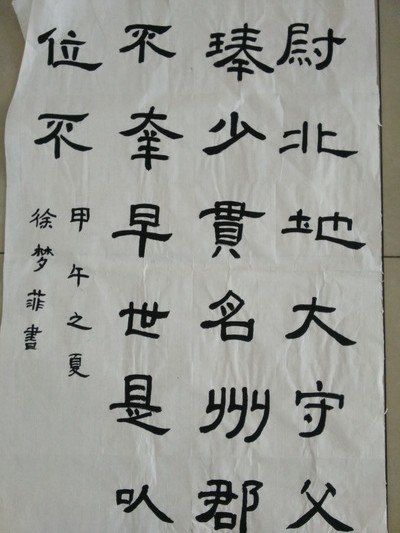 尉北地大守父
琫少貫名州郡
不幸早世是以
位不
甲午之夏
徐梦菲書